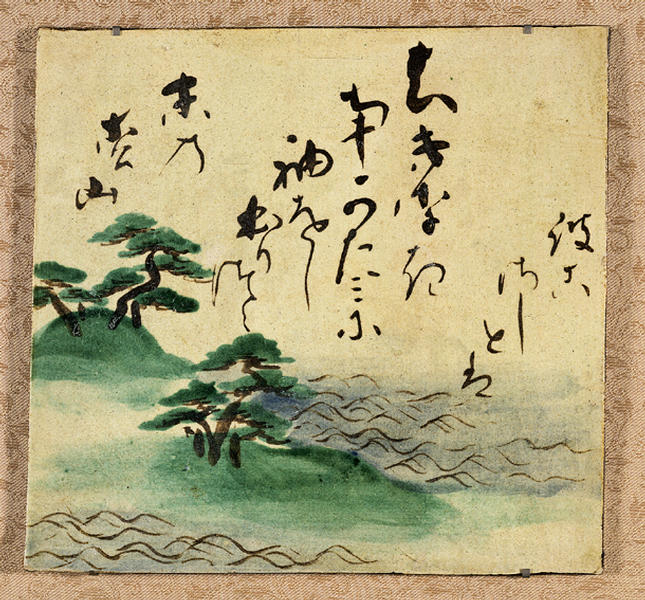 ちきりき
なかたみに
袖をし
ほりつゝ
末乃
松山
波こ
さしと
は